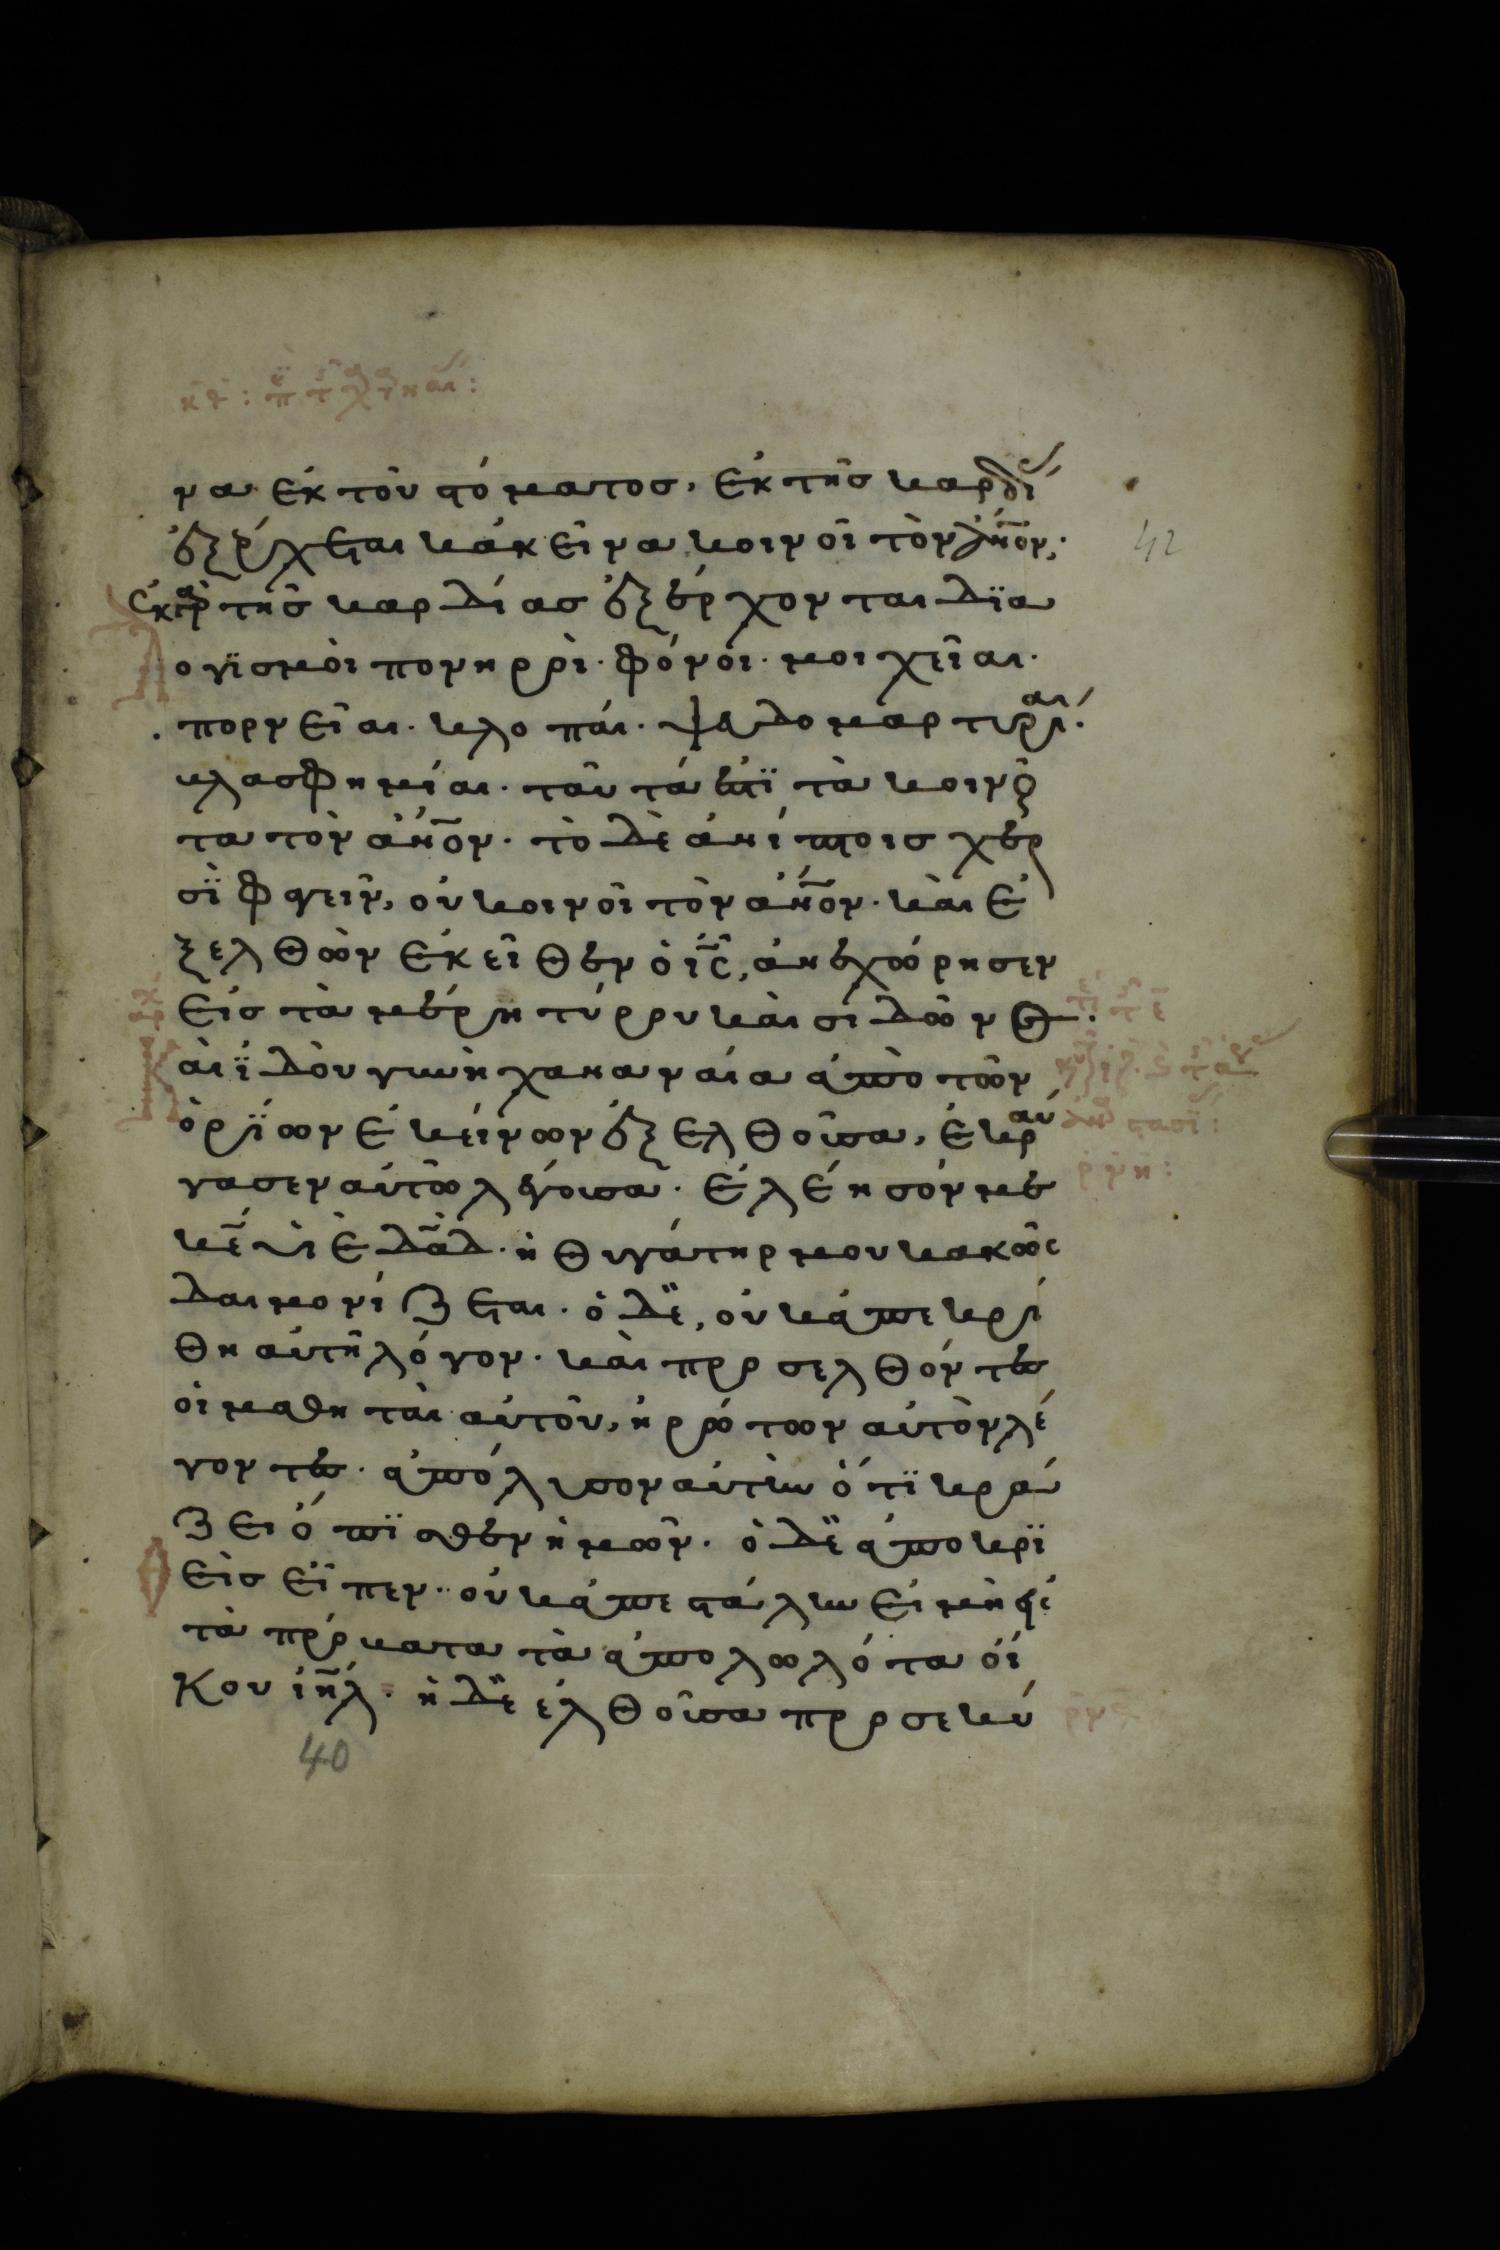 να ἐκ τοῦ στόματος, ἐκ τῆς καρδί
ἐξέρχεται κἀκεῖνα κοινοῖ τὸν ἄνον,
ἐκ γὰρ τῆς καρδίας ἐξέρχονται δϊα
ογϊσμὸι πονηρὸι· φόνοι· μοιχεῖαι·
πορνεῖαι· κλοπάι· ψευδομαρτυρίαι·
βλασφημίαι· ταῦτά ἐστϊ τὰ κοινοῦ
τα τὸν ἄνον· τὸ δὲ ἀνίπτοις χερ
σῒ φαγεῖν, οὐ κοινοῖ τὸν ἄνον· καὶ ἐ
ξελθὼν ἐκεῖθεν ὁ ις, ἀνεχώρησεν
εἰς τὰ μέρη τύρου καὶ σιδῶνο·
αὶ ἰ̈δοὺ γυνὴ χαναναία ἀπὸ τῶν
ὁρΐων ἐκείνων ἐξελθοῦσα, ἐκραύ
γασεν αὐτῶ λέγουσα· ἐλέησόν με
κε υἱὲ δαδ· ἡ θυγάτηρ μου κακῶς
δαιμονίζεται· ὁ δὲ, οὐκ ἀπεκρί
θη αὐτῆ λόγον· καὶ προσελθόντες
οἱ μαθηταὶ αὐτοῦ, ἠρώτων αὐτὸν λέ
γοντες· ἀπόλυσον αὐτὴν ὅτϊ κρά
ζει ὄπϊσθεν ἡμῶν· ὁ δὲ ἀποκρϊ
εὶς εἶπεν· οὐκ ἀπεστάλην εἰ μὴ εἰ
τὰ πρόβατα τὰ ἀπολωλότα οἴ
κου ιηλ· ἡ δὲ ἐλθοῦσα προσεκύ
42
40